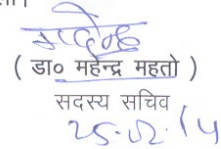 ( डा० महेन्द्र महतो )
सदस्य सचिव
25.02.14